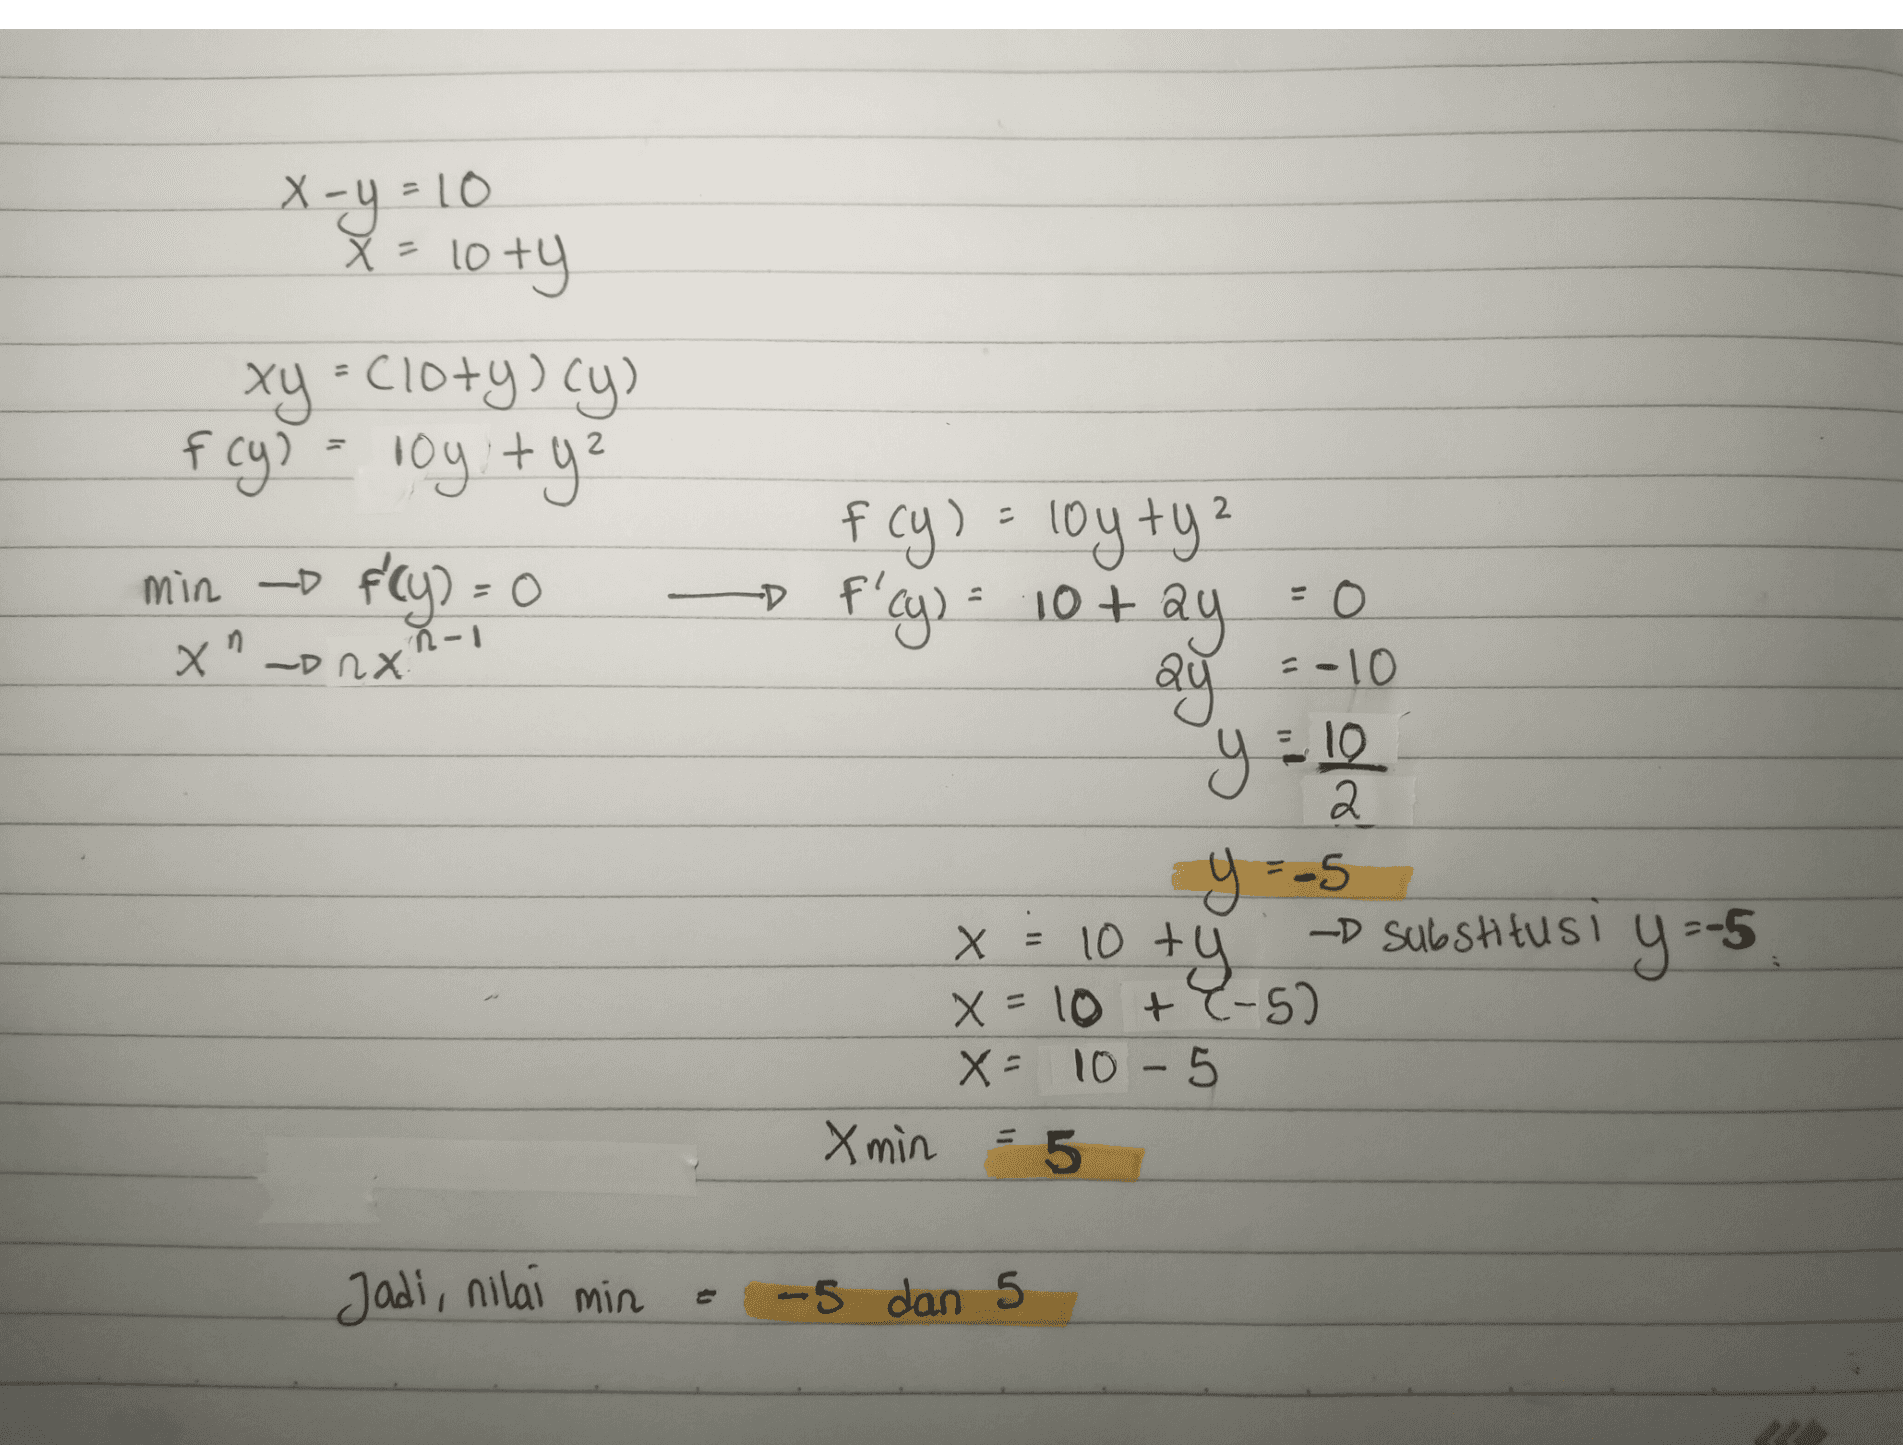 x - y = 10
x = 10 + y
xy = (10+y) (y)
f (y) = 10y + y²
min → f'(y) = 0
xⁿ → nxⁿ⁻¹
→ f (y) = 10y + y²
f'(y) = 10 + 2y = 0
2y = -10
y = - 10/2
y = -5
x = 10 + y → substitusi y = -5
x = 10 + (-5)
x = 10 - 5
x min = 5
Jadi, nilai min = -5 dan 5